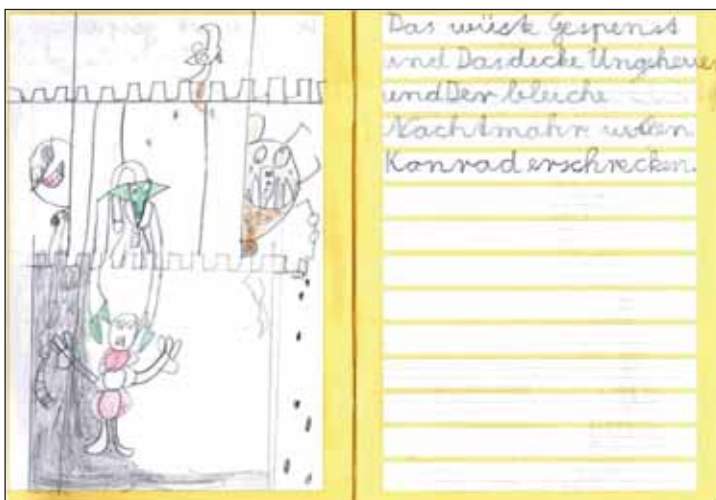 Das wüste Gespenst
und Das dicke Ungeheuer
und Der bleiche
Nachtmahr wollen
Konrad erschrecken.